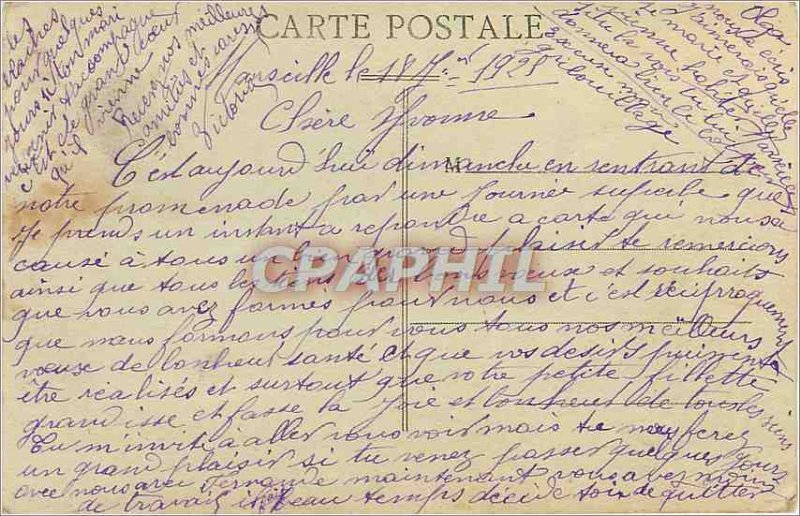 CARTE POSTALE
Marseille le 18 1925
Chère Yvonne
C'est aujourd'hui dimanche en rentrant de
notre promenade par une journée superbe que
je prends un instant a repondre a carte qui nous a
causé à tous un bien grand plaisir te remercions
ainsi que tous les tiens des bons vœux et souhaits
que vous avez formés pour nous et c'est réciproquement
que nous formons pour vous tous nos meilleurs
vœux de bonheur santé et que vos desirs puissent
être realisés et surtout que votre petite fillette
grandisse et fasse la joie et bonheur de tous les siens
Tu m'invite à aller vous voir mais tu me ferez
un grand plaisir si tu venez passer quelques jours
avec nous avec Fernande maintenant vous avez moins
de travail le beau temps decide toi de quitter
les
pour quelques
jours si ton mari
venir t'accompagne
c'est de grand cœur
qu'il vienne
Recevez nos meilleures
amitiés et
bonnes caresses
Victoria
Olga
marie et qu'elle
si tu la vois tu lui
donnera bien le
gribouillage
CPAPHIL